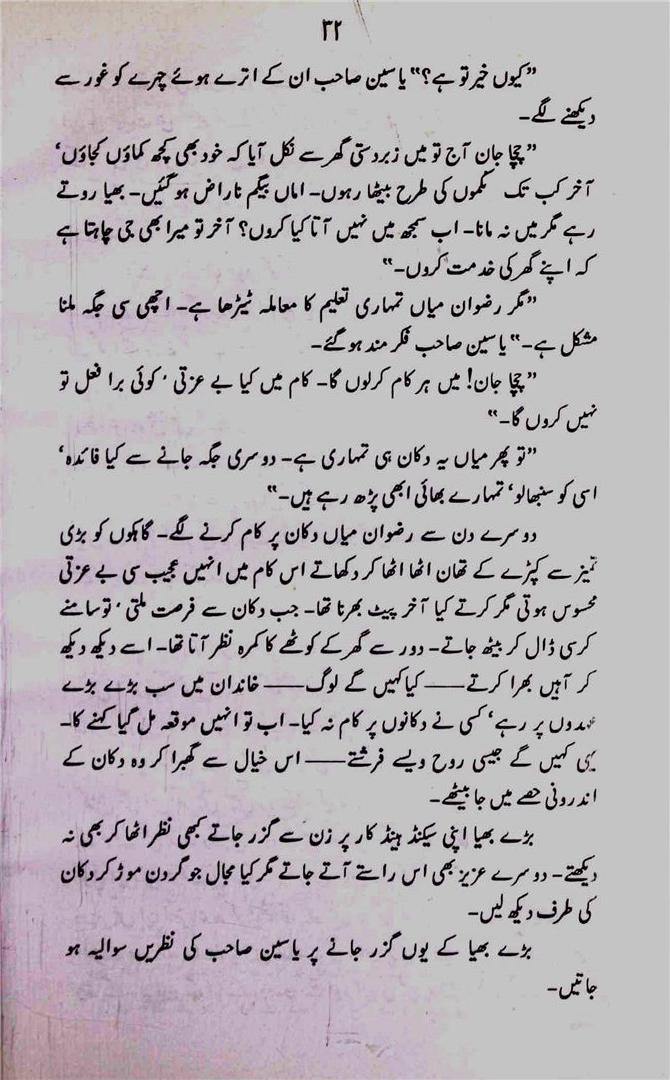 ۳۲
"کیوں خیر تو ہے؟" یاسین صاحب ان کے اترے ہوئے چہرے کو غور سے
دیکھنے لگے۔
"چچا جان آج تو میں زبردستی گھر سے نکل آیا کہ خود بھی کچھ کماؤں کجاؤں'
آخر کب تک نکموں کی طرح بیٹھا رہوں۔ اماں بیگم ناراض ہو گئیں۔ بھیا روتے
رہے مگر میں نہ مانا۔ اب سمجھ میں نہیں آتا کیا کروں؟ آخر تو میرا بھی جی چاہتا ہے
کہ اپنے گھر کی خدمت کروں۔"
"مگر رضوان میاں تمہاری تعلیم کا معاملہ ٹیڑھا ہے۔ اچھی سی جگہ ملنا
مشکل ہے۔" یاسین صاحب فکر مند ہو گئے۔
"چچا جان! میں ہر کام کرلوں گا۔ کام میں کیا بے عزتی' کوئی برا فعل تو
نہیں کروں گا۔"
"تو پھر میاں یہ دکان ہی تمہاری ہے۔ دوسری جگہ جانے سے کیا فائدہ'
اسی کو سنبھالو' تمہارے بھائی ابھی پڑھ رہے ہیں۔"
دوسرے دن سے رضوان میاں دکان پر کام کرنے لگے۔ گاہکوں کو بڑی
تمیز سے کپڑے کے تھان اٹھا اٹھا کر دکھاتے اس کام میں انہیں عجیب سی بے عزتی
محسوس ہوتی مگر کرتے کیا آخر پیٹ بھرنا تھا۔ جب دکان سے فرصت ملتی' تو سامنے
کرسی ڈال کر بیٹھ جاتے۔ دور سے گھر کے کوٹھے کا کمرہ نظر آتا تھا۔ اسے دیکھ دیکھ
کر آہیں بھرا کرتے —— کیا کہیں گے لوگ —— خاندان میں سب بڑے بڑے
عہدوں پر رہے' کسی نے دکانوں پر کام نہ کیا۔ اب تو انہیں موقعہ مل گیا کہنے کا۔
یہی کہیں گے جیسی روح ویسے فرشتے —— اس خیال سے گھبرا کر وہ دکان کے
اندرونی حصے میں جا بیٹھے۔
بڑے بھیا اپنی سیکنڈ ہینڈ کار پر زن سے گزر جاتے کبھی نظر اٹھا کر بھی نہ
دیکھتے۔ دوسرے عزیز بھی اس راستے آتے جاتے مگر کیا مجال جو گردن موڑ کر دکان
کی طرف دیکھ لیں۔
بڑے بھیا کے یوں گزر جانے پر یاسین صاحب کی نظریں سوالیہ ہو
جاتیں۔